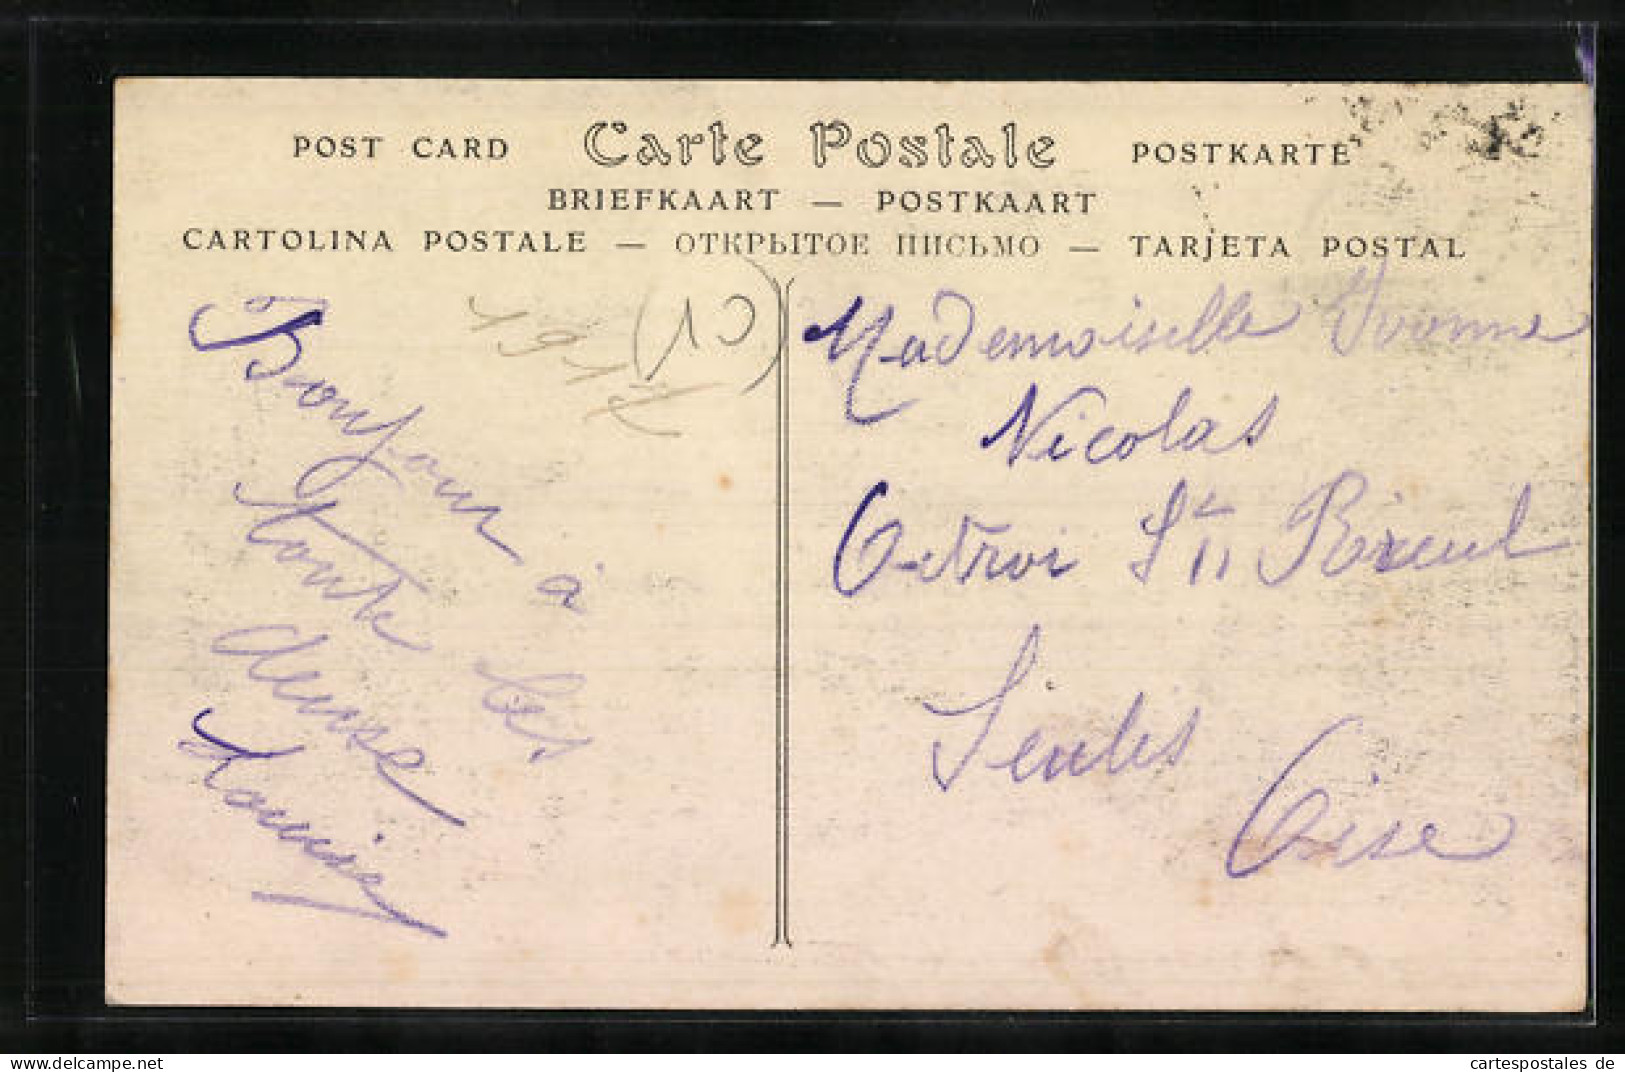 POST CARD Carte Postale POSTKARTE
BRIEFKAART — POSTKAART
CARTOLINA POSTALE — ОТКРЫТОЕ ПИСЬМО — TARJETA POSTAL
(10)
Bonjour à
toute les
deuse
Louise
Mademoiselle Yvonne
Nicolas
Octroi St
Senlis
Oise
www.cartespostales.de
cartespostales de